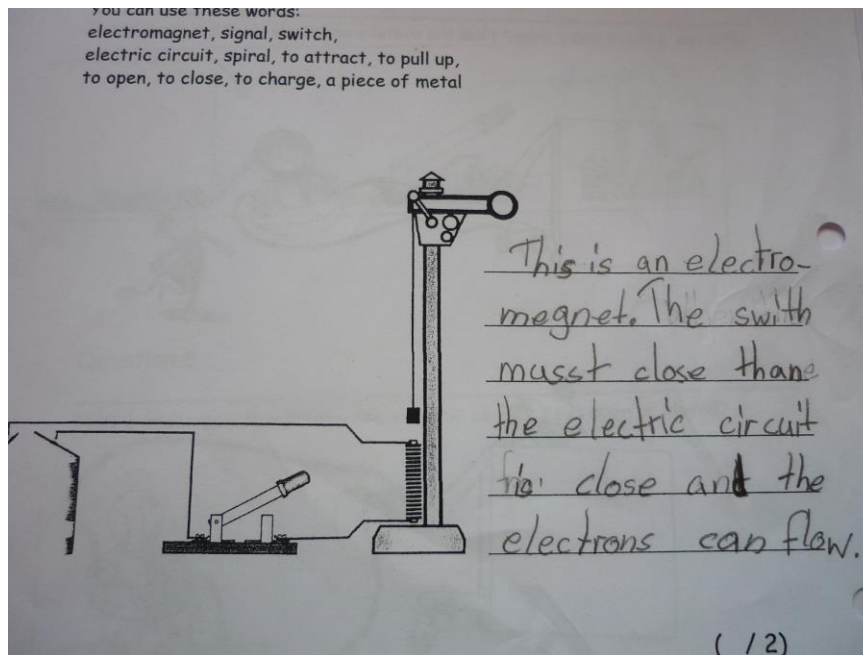 You can use these words:
electromagnet, signal, switch,
electric circuit, spiral, to attract, to pull up,
to open, to close, to charge, a piece of metal
This is an electro-
megnet. The swith
musst close thane
the electric circuit
is close and the
electrons can flow.
( / 2)